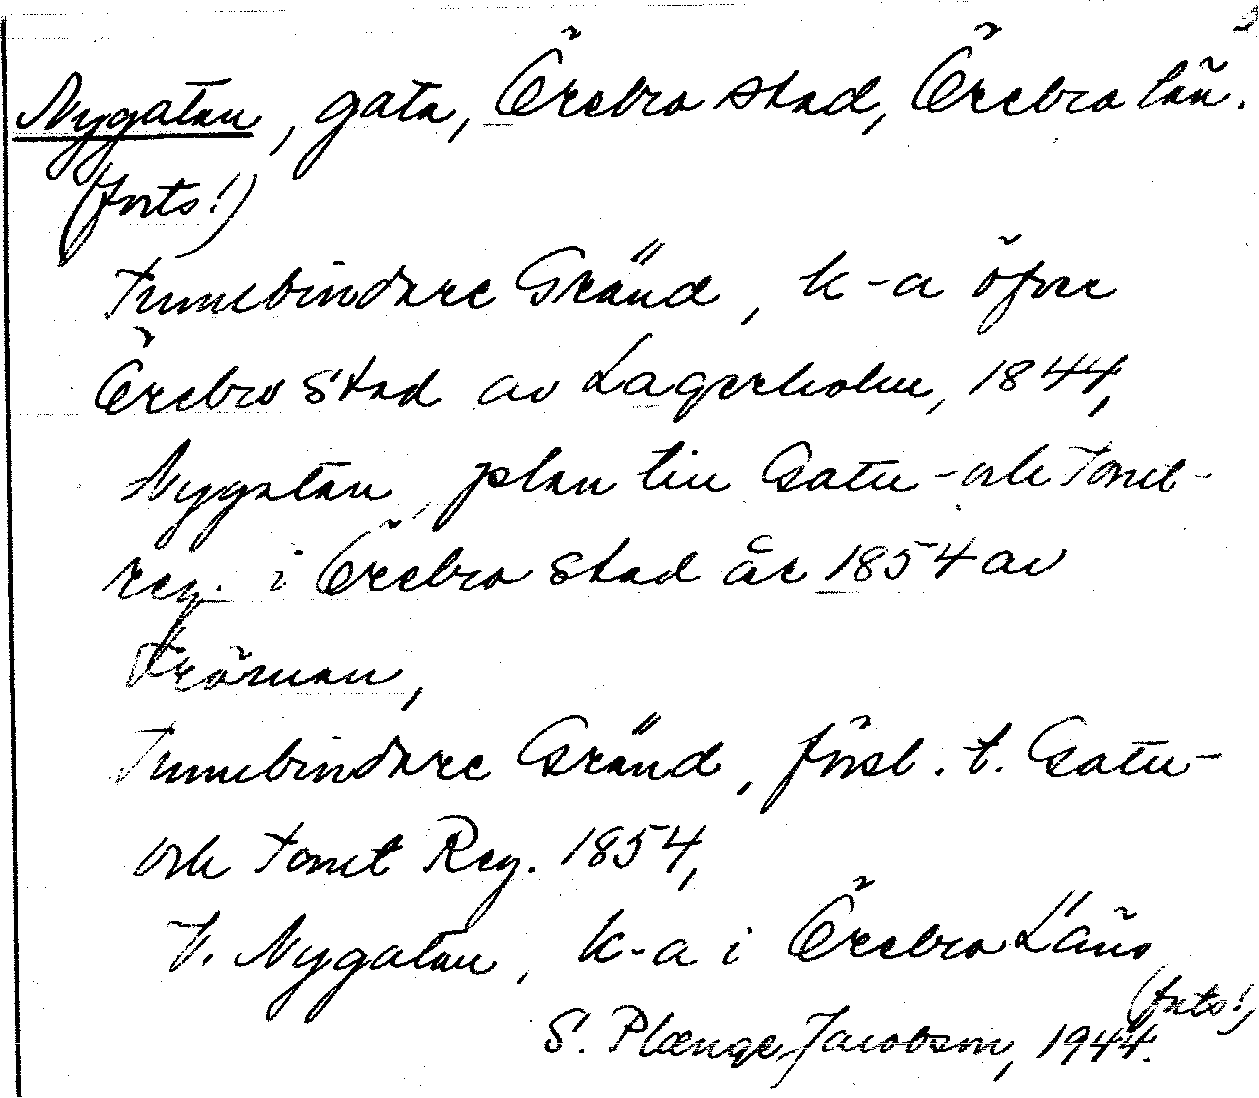 Nygatan, gata, Örebro stad, Örebro län.
(forts!)
Tunnebindare Gränd, k-a öfver
Örebro Stad av Lagerholm, 1844,
Nygatan, plan till Gatu- och Tomt-
reg. i Örebro stad år 1854 av
Tröman,
Tunnebindare Gränd, försl. t. Gatu-
och Tomt Reg. 1854,
V. Nygatan, k-a i Örebro Läns
(forts!)
S. Plænge Jacobson, 1944.